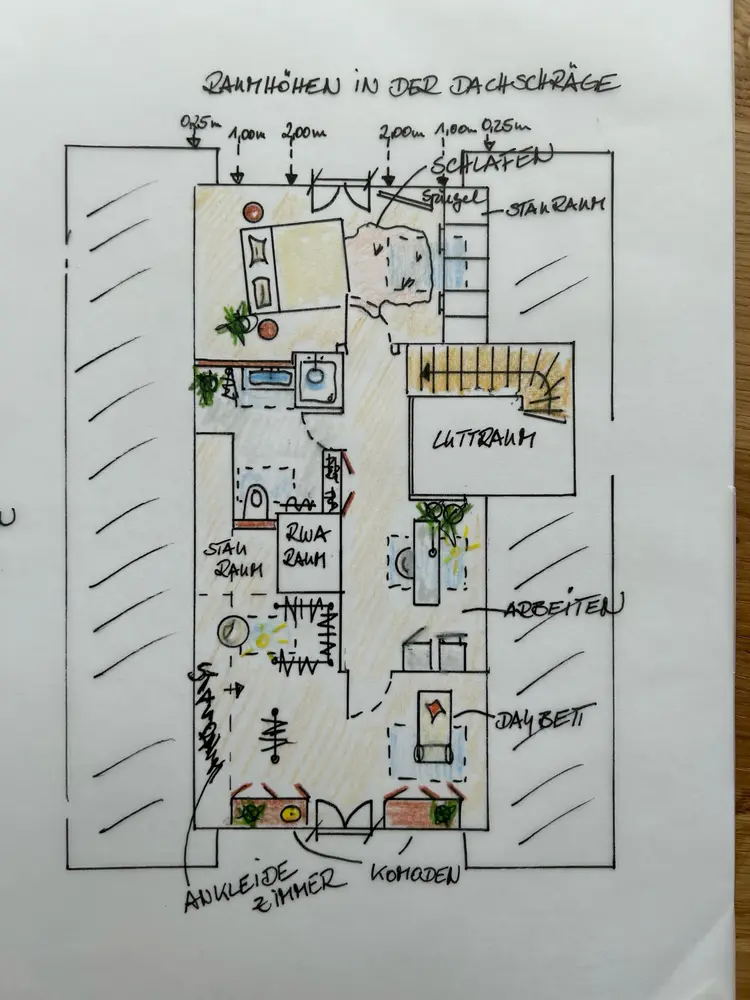 RAUMHÖHEN IN DER DACHSCHRÄGE
0,25m 1,00m 2,00m 2,00m 1,00m 0,25m
SCHLAFEN
Spiegel
STAURAUM
LUFTRAUM
RWA
RAUM
STAU
RAUM
ARBEITEN
DAYBETT
ANKLEIDE
ZIMMER
KOMODEN